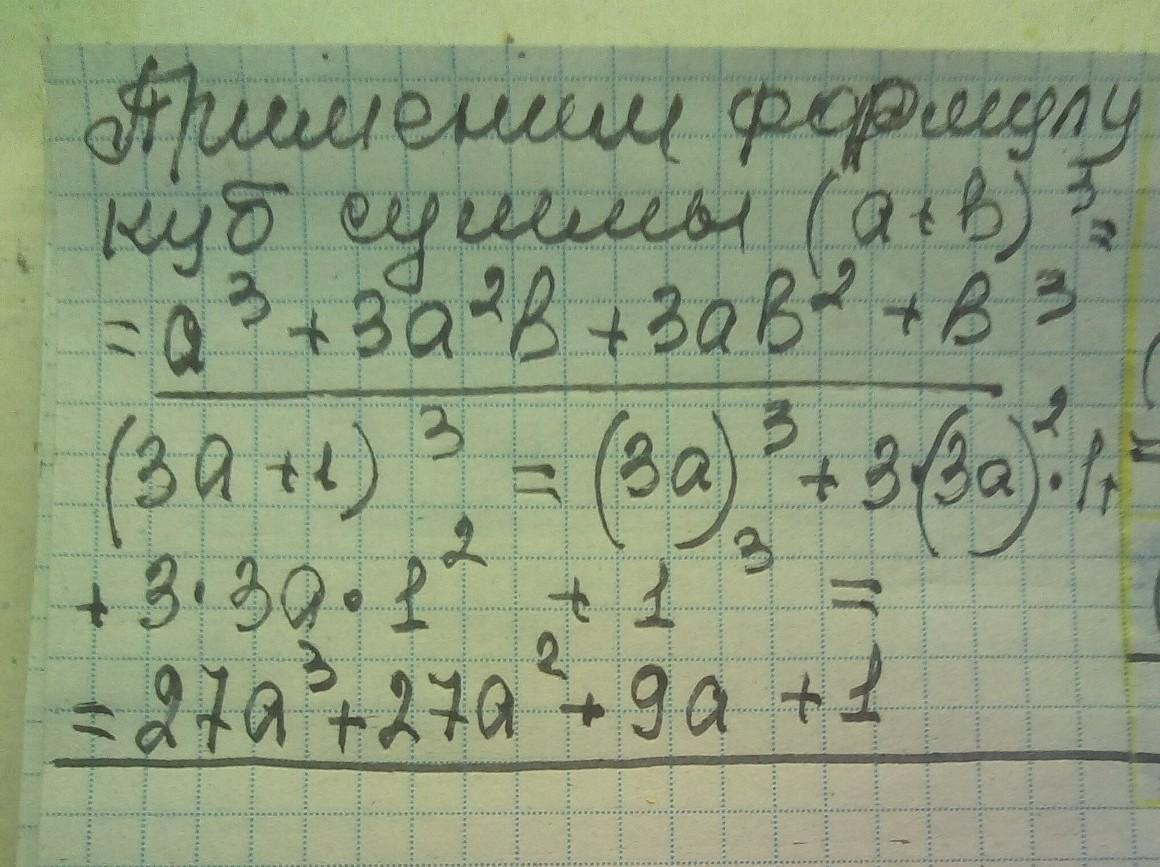 Применим формулу
куб суммы (a+b)³=
=a³+3a²b+3ab²+b³
(3a+1)³=(3a)³+3·(3a)²·1+
+3·3a·1²+1³=
=27a³+27a²+9a+1